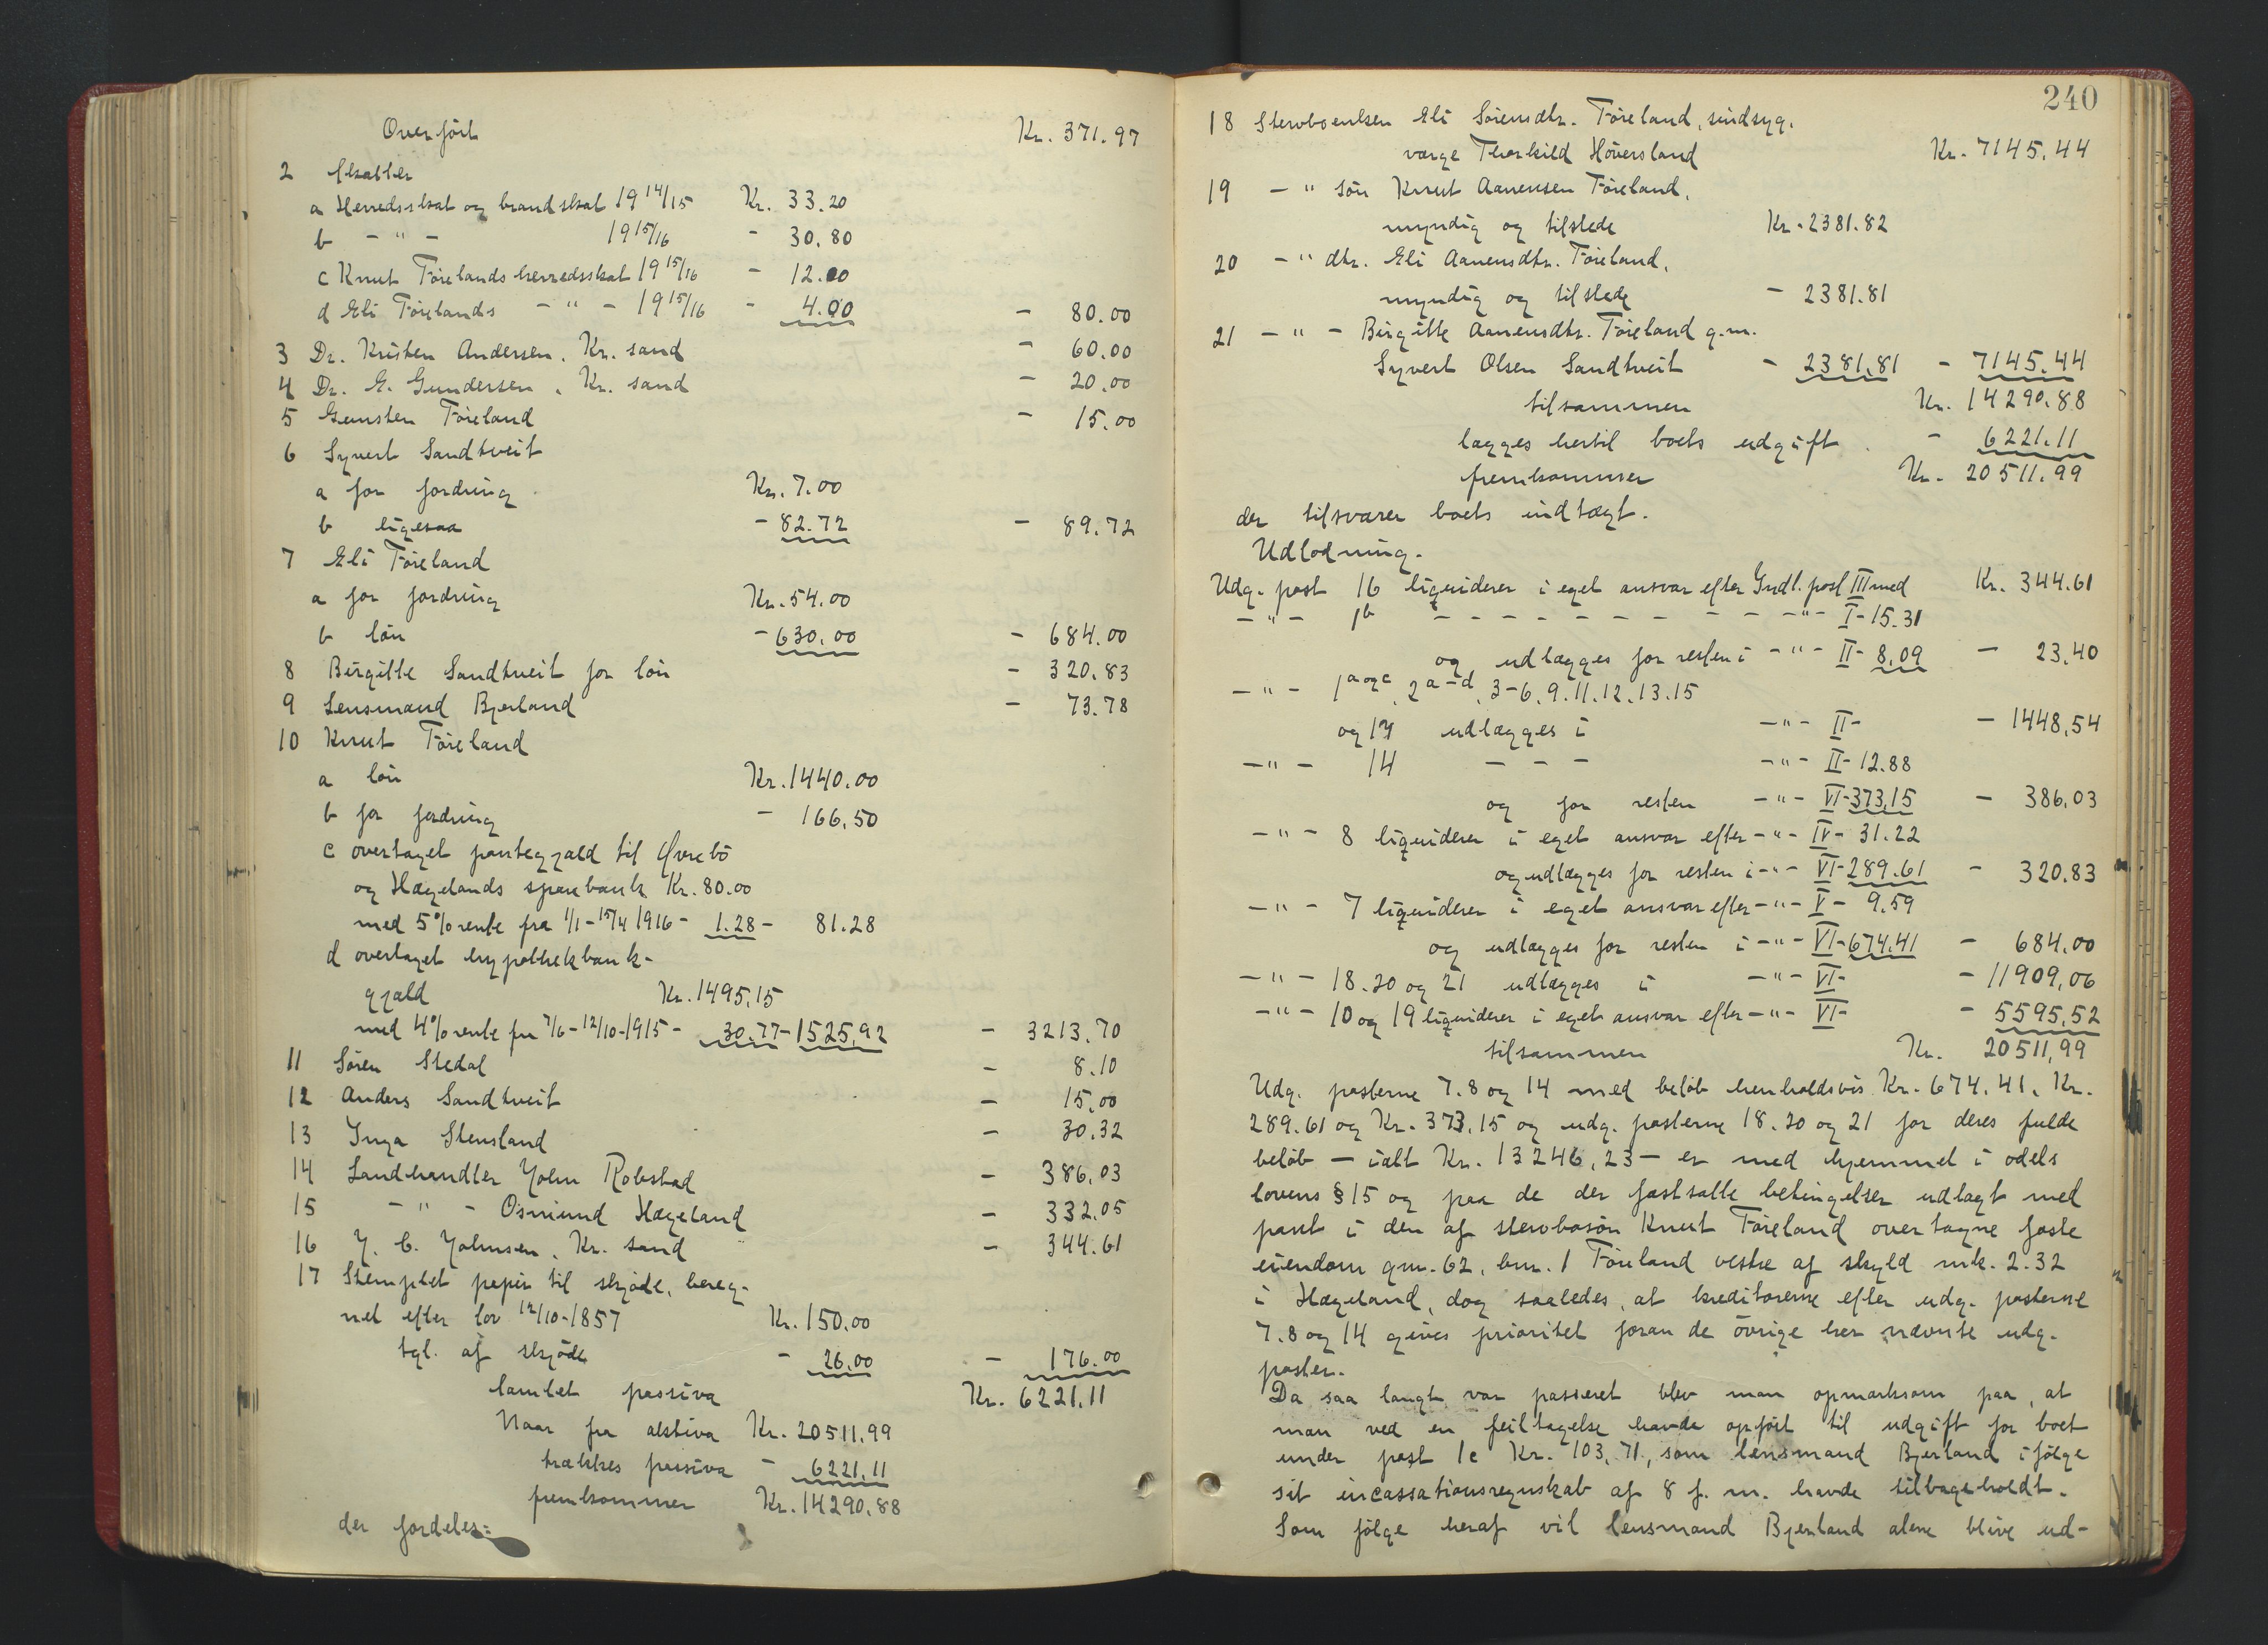 Overført Kr. 371.97
2 Skatter
a Herredsskat og brandskat 19 14/15 Kr. 33.20
b - " - 19 15/16 - 30.80
c Knut Føielands herredsskat 19 15/16 - 12.00
d Eli Føielands - " - 19 15/16 - 4.00 - 80.00
3 Dr. Kristen Andersen, Kr. sand - 60.00
4 Dr. G. Gundersen, Kr. sand - 20.00
5 Gunsten Føieland - 15.00
6 Syvert Sandtveit
a for fordring Kr. 7.00
b ligesaa - 82.72 - 89.72
7 Eli Føieland
a for fordring Kr. 54.00
b løn - 630.00 - 684.00
8 Birgitte Sandtveit for løn - 320.83
9 Lensmand Bjerland - 73.78
10 Knut Føieland
a løn Kr. 1440.00
b for fordring - 166.50
c overtaget pantegjæld til Øvrebø
og Hægelands sparebank Kr. 80.00
med 5% rente fra 1/1-15/4 1916 - 1.28 - 81.28
d overtaget hypothekbank-
gjæld Kr. 1495.15
med 4% rente fra 7/6-12/10-1915 - 30.77 - 1525.92 - 3213.70
11 Søren Stedal - 8.10
12 Anders Sandtveit - 15.00
13 Inga Stensland - 30.32
14 Landhandler John Robstad - 386.03
15 - " - Osmund Hægeland - 332.05
16 J. C. Johnsen, Kr. sand - 344.61
17 Stemplet papir til skjøde, bereg-
net efter lov 12/10-1857 Kr. 150.00
tgl. af skjøde - 26.00 - 176.00
samlet passiva Kr. 6221.11
Naar fra aktiva Kr. 20511.99
trækkes passiva - 6221.11
fremkommer Kr. 14290.88
der fordeles:
240
18 Stervboenken Eli Sørensdtr. Føieland, sindsyg.
værge Therkild Høversland Kr. 7145.44
19 - " søn Knut Aanensen Føieland,
myndig og tilstede Kr. 2381.82
20 - " dtr. Eli Aanensdtr. Føieland,
myndig og tilstede - 2381.81
21 - " - Birgitte Aanensdtr. Føieland g.m.
Syvert Olsen Sandtveit - 2381.81 - 7145.44
tilsammen Kr. 14290.88
lægges hertil boets udgift - 6221.11
fremkommer Kr. 20511.99
der tilsvarer boets indtægt.
Udlodning.
Udg. post 16 liquiderer i eget ansvar efter Indt. post III med Kr. 344.61
- " - 1b - - - - - - - - - " - I - 15.31
og udlægges for resten i - " - II - 8.09 - 23.40
- " - 1a og c, 2a-d, 3-6, 9. 11. 12. 13. 15
og 17 udlægges i - " - II - - 1448.54
- " - 14 - - - - " - II - 12.88
og for resten - " - VI - 373.15 - 386.03
- " - 8 liquiderer i eget ansvar efter - " - IV - 31.22
og udlægges for resten i - " - VI - 289.61 - 320.83
- " - 7 liquiderer i eget ansvar efter - " - V - 9.59
og udlægges for resten i - " - VI - 674.41 - 684.00
- " - 18. 20 og 21 udlægges i - " - VI - - 11909.06
- " - 10 og 19 liquiderer i eget ansvar efter - " - VI - - 5595.52
tilsammen Kr. 20511.99
Udg. posterne 7. 8 og 14 med beløb henholdsvis Kr. 674.41, Kr.
289.61 og Kr. 373.15 og udg. posterne 18. 20 og 21 for deres fulde
beløb - ialt Kr. 13246.23 - er med hjemmel i odels
lovens § 15 og paa de der fastsatte betingelser udlagt med
pant i den af stervbosøn Knut Føieland overtagne faste
eiendom gnr. 62, bnr. 1 Føieland vestre af skyld mk. 2.32
i Hægeland, dog saaledes, at kreditorerne efter udg. posterne
7. 8 og 14 gives prioritet foran de øvrige her nævnte udg.
poster.
Da saa langt var passeret blev man opmerksom paa, at
man ved en feiltagelse havde opført til udgift for boet
under post 1c Kr. 103.71, som lensmand Bjerland ifølge
sit incassationsregnskab af 8 f. m. havde tilbageholdt.
Som følge heraf vil lensmand Bjerland alene blive ud-